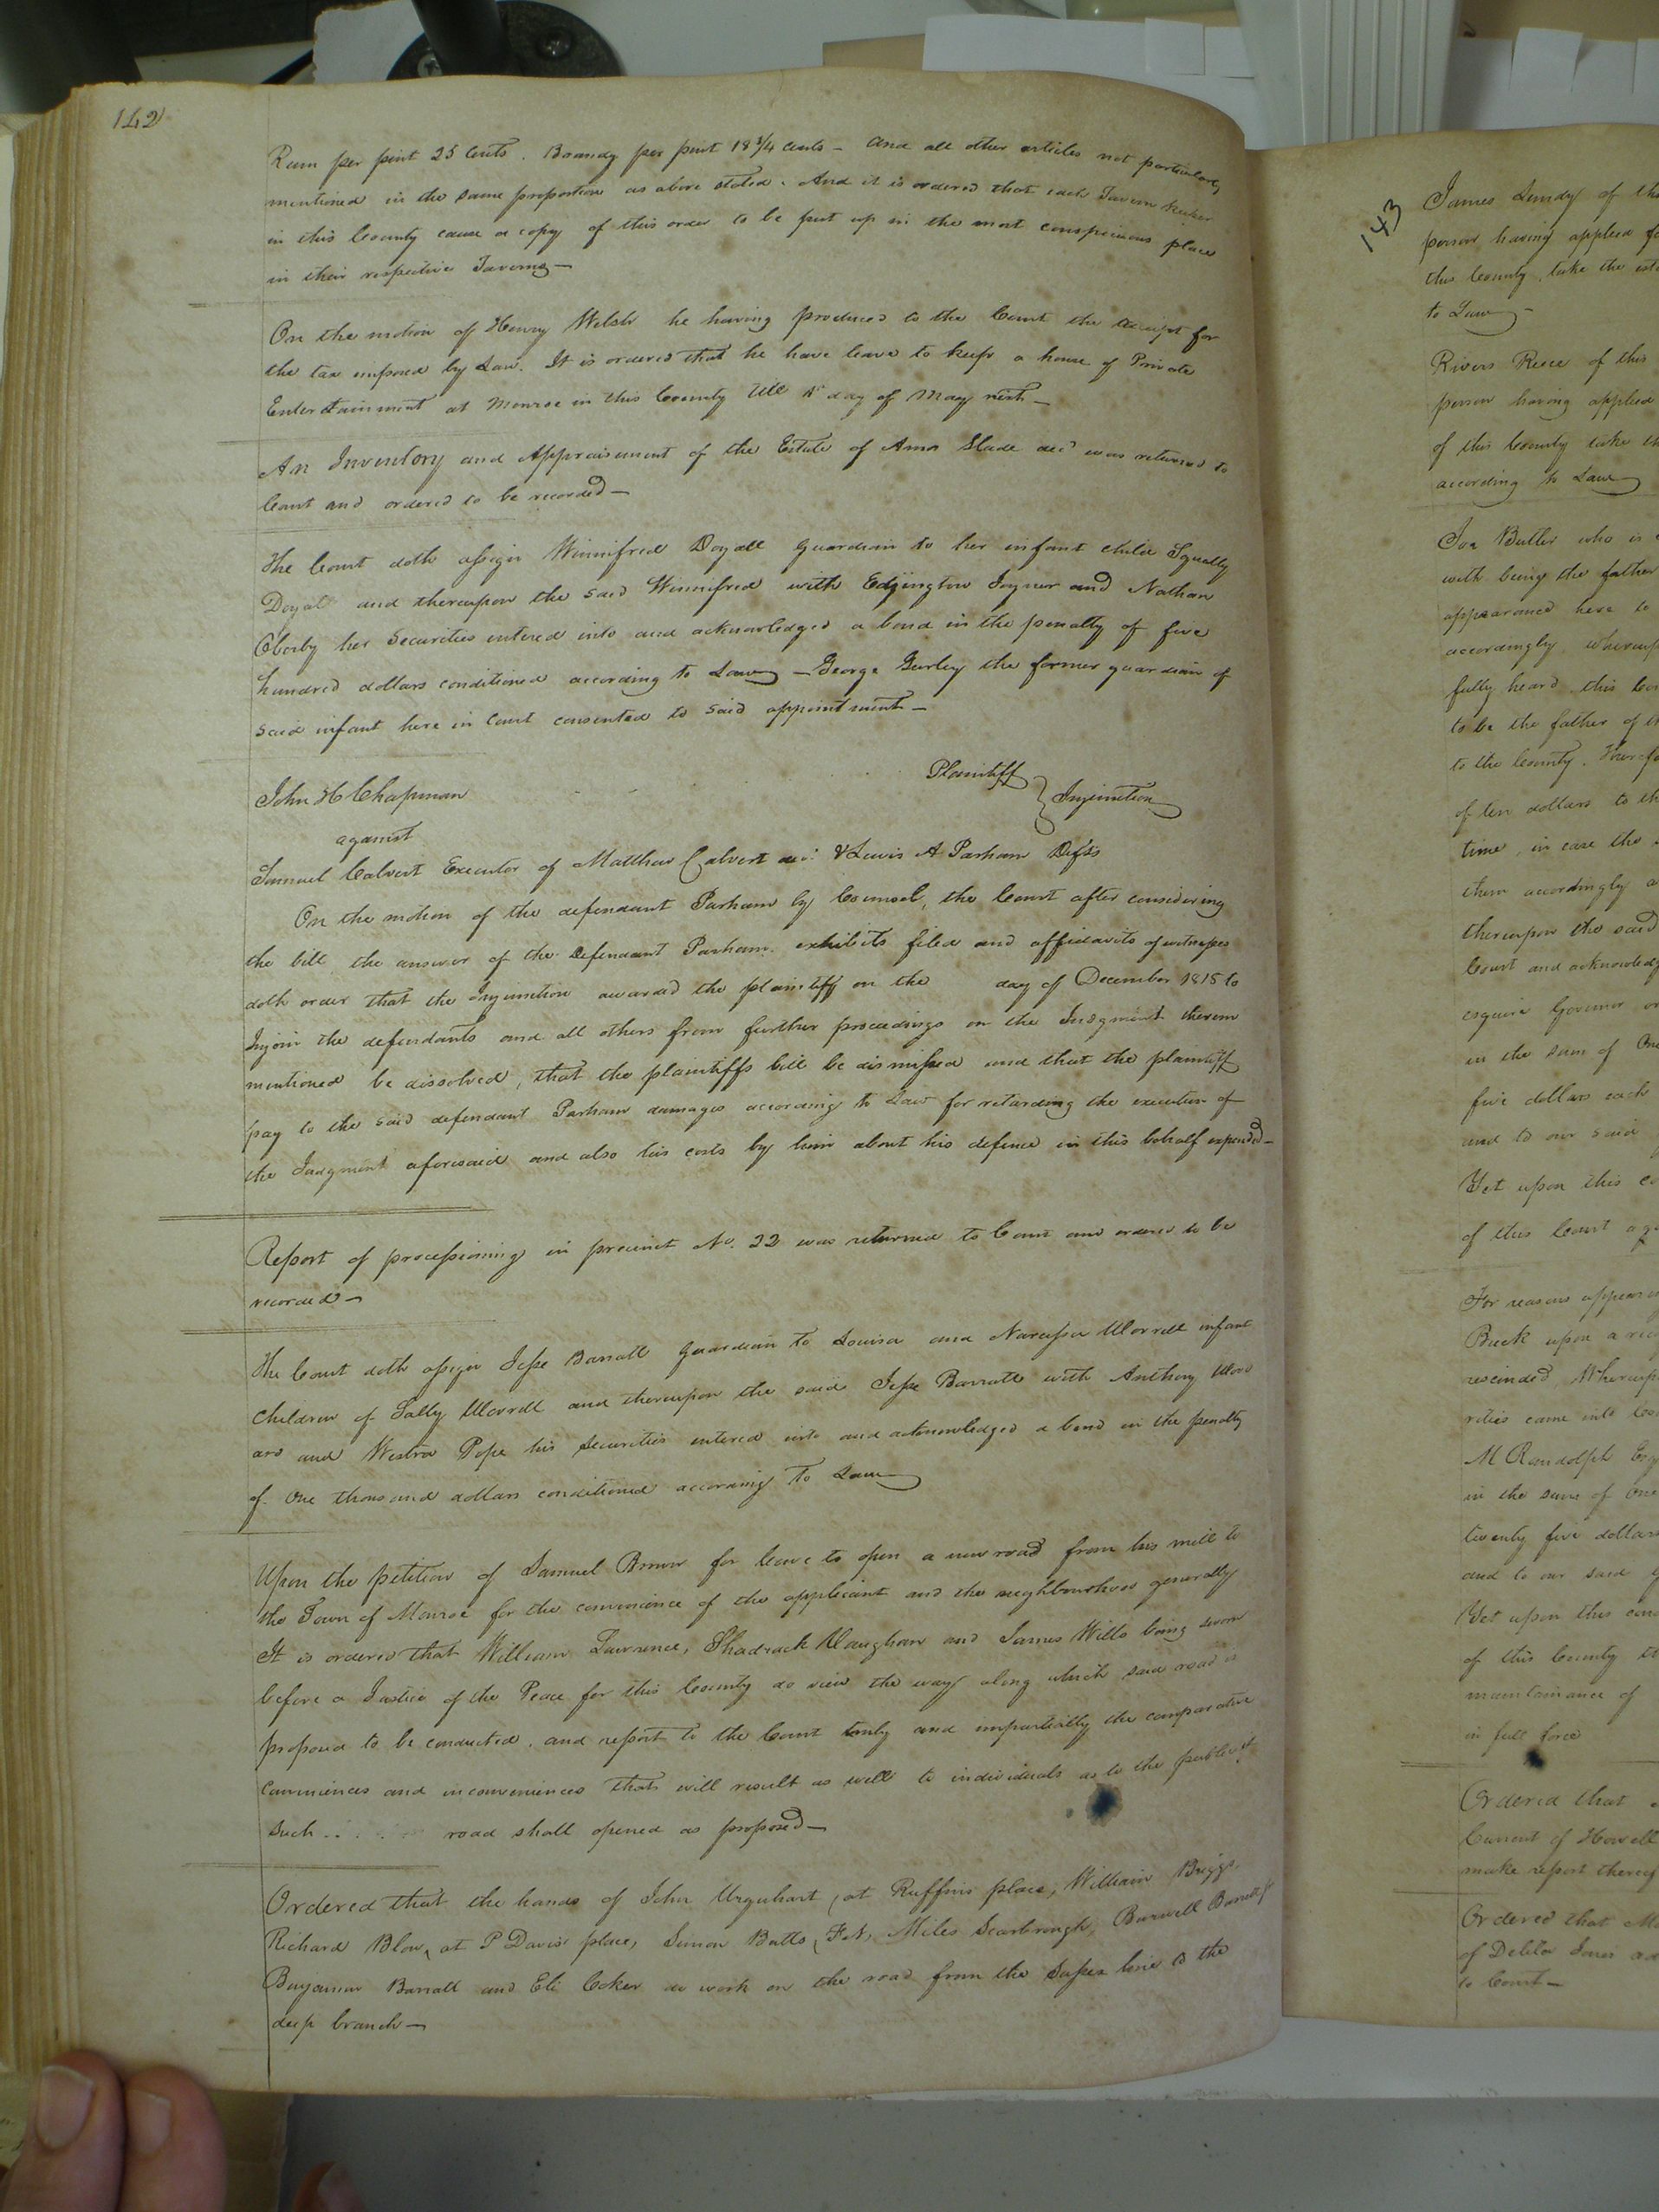 142
Rum per pint 25 Cents. Brandy per pint 18 3/4 cents - and all other articles not particularly
mentioned in the same proportion as above stated. And it is ordered that each Tavern keeper
in this County cause a copy of this order to be put up in the most conspicuous place
in their respective Taverns—
On the motion of Henry Welsh he having produced to the Court the receipt for
the tax imposed by Law. It is ordered that he have leave to keep a house of Private
Entertainment at Monroe in this County till 1st day of May next—
An Inventory and Appraisement of the Estate of Amos Slade decd was returned to
Court and ordered to be recorded—
The Court doth assign Winnifred Doyall guardian to her infant child
Doyal and thereupon the said Winnifred with Edjington Joyner and Nathan
her Securities entered into and acknowledged a bond in the penalty of five
hundred dollars conditioned according to Law — George Gurley the former guardian of
said infant here in Court consented to said appointment—
John H Chapman Plaintiff
against } Injunction
Samuel Calvert Executor of Matthew Calvert decd. & Lewis A Parham Defts
On the motion of the defendant Parham by Counsel, the Court after considering
the bill the answer of the Defendant Parham. exhibits filed and affidavits of witnesses
doth order that the Injunction awarded the plaintiff on the day of December 1815 to
Injoin the defendants and all others from further proceedings on the Judgment therein
mentioned be dissolved, that the plaintiffs bill be dismissed and that the plaintiff
pay to the said defendant Parham damages according to Law for retarding the execution of
the Judgment aforesaid and also his costs by him about his defence in this behalf expended—
Report of processioning in precinct No. 22 was returned to Court and ordered to be
recorded—
The Court doth assign Jesse Barratt guardian to Louisa and Narcissa Worrell infant
children of Sally Worrell and thereupon the said Jesse Barratt with Anthony Wood
ard and Weston Pope his Securities entered into and acknowledged a bond in the penalty
of One thousand dollars conditioned according to Law
Upon the petition of Samuel Brown for leave to open a new road from his mill to
the Town of Monroe for the convenience of the applicant and the neighbourhood generally
It is ordered that William Lawrence, Shadrack Vaughan and James Wills being sworn
before a Justice of the Peace for this County do view the way along which said road is
proposed to be conducted. and report to the Court truly and impartially the comparative
conveniences and inconveniences that will result as well to individuals as to the public if
such road shall opened as proposed—
Ordered that the hands of John Urquhart (at Ruffins place, William Briggs,
Richard Blow, at P Davis' place, Simon Butts, Miles Scarbrough, Burwell Barratt
Benjamin Barratt and Eli Coker do work on the road from the Sussex line to the
deep branch—
143
James Lundy of
person having applied
this County, take the
to Law—
Rivers Reese of this
person having applied
of this County take
according to Law
Butler who is
with being the father
appearance here to
accordingly
fully heard, this
to be the father of
to the County.
of ten dollars to
time, in case the
them accordingly
thereupon the said
Court and
esquire Governor
in the sum of One
five dollars each
and to our said
Yet upon this
of this Court
For reasons
upon a
rescinded,
rities came into
M Randolph Esq
in the sum of One
twenty five dollars
and to our said
Yet upon this
of this County
maintainance of
in full force
Ordered that
Current of Howell
make report thereof
Ordered that
of Delila
to Court—